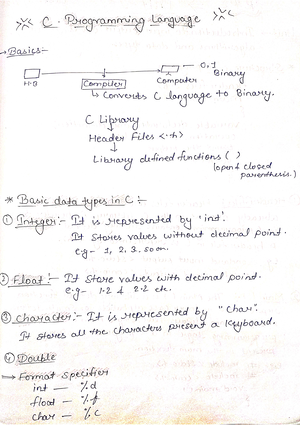 C Programming Language
Basics:-
0,1
H.D Computer Computer Binary
Converts C language to Binary.
C Library
Header Files <.h>
Library defined functions ( )
(open & closed
parenthesis.)
* Basic data types in C :-
① Integer:- It is represented by 'int'.
It stores values without decimal point.
e.g- 1, 2, 3, so on.
② Float:- It store values with decimal point.
e.g- 1.2 & 2.2 etc.
③ Character:- It is represented by "Char".
It stores all the characters present a Keyboard.
④ Double
Format Specifier
int — %d
float — %f
char — %c